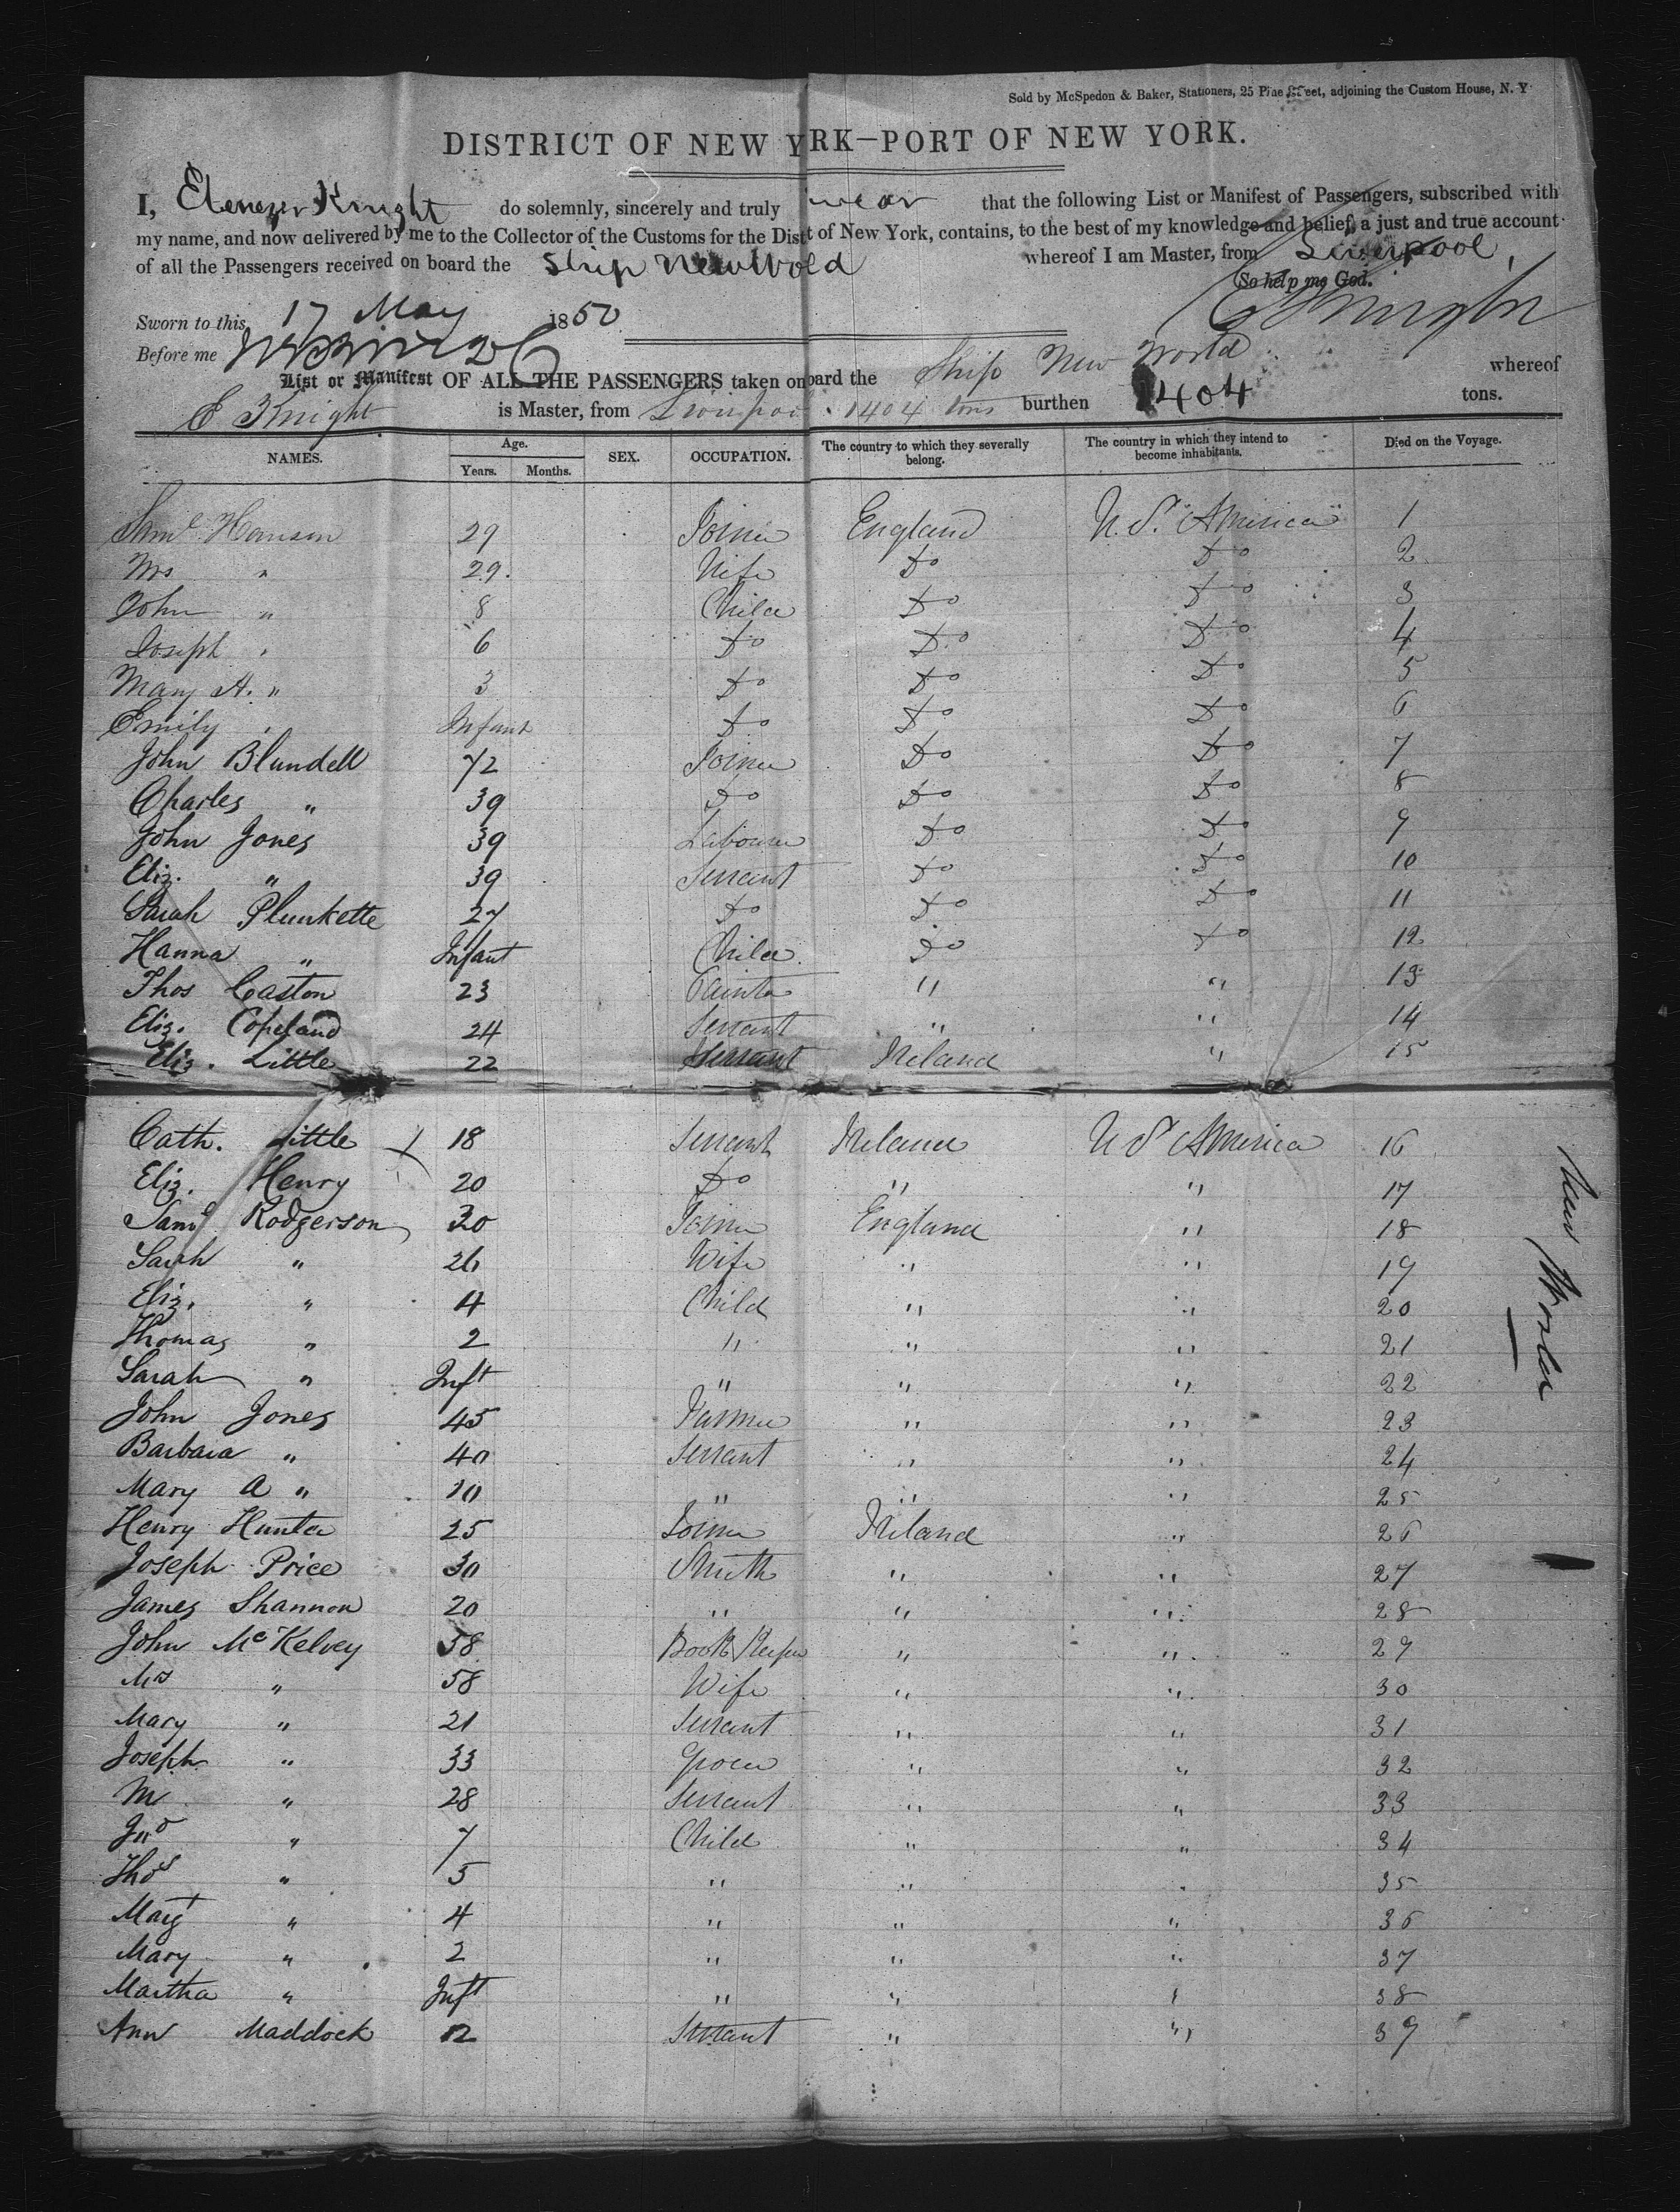 Sold by McSpedon & Baker, Stationers, 25 Pine Street, adjoining the Custom House, N. Y.
DISTRICT OF NEW YRK—PORT OF NEW YORK.
I, Ebenezer Knight do solemnly, sincerely and truly swear that the following List or Manifest of Passengers, subscribed with
my name, and now delivered by me to the Collector of the Customs for the Dist of New York, contains, to the best of my knowledge and belief, a just and true account
of all the Passengers received on board the Ship New Wold whereof I am Master, from Liverpool,
So help me God.
Sworn to this 17 May 1850 E Knight
Before me
List or Manifest OF ALL THE PASSENGERS taken on board the Ship New World whereof
E Knight is Master, from Liverpool 1404 tons burthen 1404 tons.
NAMES. Age. Years. Months. SEX. OCCUPATION. The country to which they severally belong. The country in which they intend to become inhabitants. Died on the Voyage.
Saml Harrison 29 Joiner England U.S. America 1
Mrs " 29 Wife Do Do 2
John " 8 Child Do Do 3
Joseph " 6 Do Do Do 4
Mary A. " 3 Do Do Do 5
Emily " Infant Do Do Do 6
John Blundell 72 Joiner Do Do 7
Charles " 39 Do Do Do 8
John Jones 39 Labourer Do Do 9
Eliz. " 39 Servant Do Do 10
Sarah Plunkette 27 Do Do Do 11
Hanna " Infant Child Do Do 12
Thos Caston 23 Painter " " 13
Eliz. Copeland 24 Servant " " 14
Eliz. Little 22 Servant Ireland " 15
Cath. Little 18 Servant Ireland U S America 16
Eliz. Henry 20 Do " " 17
Saml Rodgerson 30 Joiner England " 18
Sarah " 26 Wife " " 19
Eliz. " 4 Child " " 20
Thomas " 2 " " " 21
Sarah " Inft " " " 22
John Jones 45 Farmer " " 23
Barbara " 40 Servant " " 24
Mary A " 10 " " " 25
Henry Hunter 25 Joiner Ireland " 26
Joseph Price 30 Smith " " 27
James Shannon 20 " " " 28
John McKelvey 58 Book Keeper " " 29
Mrs " 58 Wife " " 30
Mary " 21 Servant " " 31
Joseph " 33 Grocer " " 32
M " 28 Servant " " 33
Jno " 7 Child " " 34
Thos " 5 " " " 35
Margt " 4 " " " 36
Mary " 2 " " " 37
Martha " Inft " " " 38
Ann Maddock 12 Servant " " 39
New World